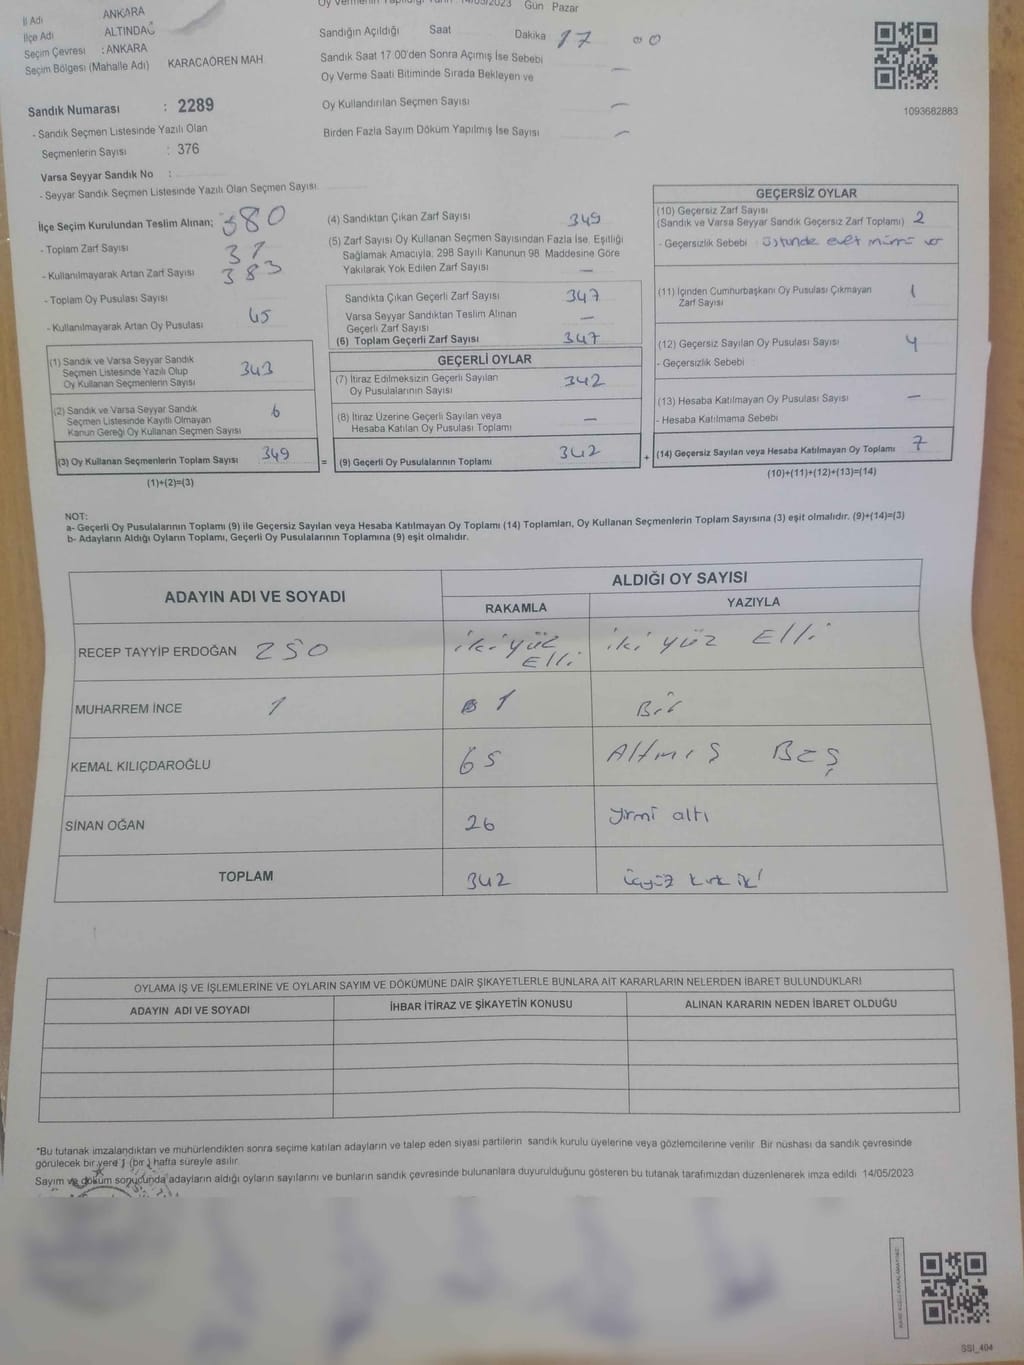 Oy Vermenin Yapıldığı Tarih 14/05/2023 Gün Pazar
İl Adı ANKARA
İlçe Adı ALTINDAĞ
Seçim Çevresi : ANKARA
Seçim Bölgesi (Mahalle Adı) KARACAÖREN MAH
Sandığın Açıldığı Saat Dakika 17 00
Sandık Saat 17:00'den Sonra Açımış İse Sebebi
Oy Verme Saati Bitiminde Sırada Bekleyen ve —
Oy Kullandırılan Seçmen Sayısı —
Birden Fazla Sayım Döküm Yapılmış İse Sayısı —
1093682883
Sandık Numarası : 2289
- Sandık Seçmen Listesinde Yazılı Olan
Seçmenlerin Sayısı : 376
Varsa Seyyar Sandık No :
- Seyyar Sandık Seçmen Listesinde Yazılı Olan Seçmen Sayısı
İlçe Seçim Kurulundan Teslim Alınan; 380
- Toplam Zarf Sayısı 31
- Kullanılmayarak Artan Zarf Sayısı 383
- Toplam Oy Pusulası Sayısı
- Kullanılmayarak Artan Oy Pusulası 45
(1) Sandık ve Varsa Seyyar Sandık
Seçmen Listesinde Yazılı Olup
Oy Kullanan Seçmenlerin Sayısı 343
(2) Sandık ve Varsa Seyyar Sandık
Seçmen Listesinde Kayıtlı Olmayan
Kanun Gereği Oy Kullanan Seçmen Sayısı 6
(3) Oy Kullanan Seçmenlerin Toplam Sayısı 349
(1)+(2)=(3)
(4) Sandıktan Çıkan Zarf Sayısı 349
(5) Zarf Sayısı Oy Kullanan Seçmen Sayısından Fazla İse, Eşitliği
Sağlamak Amacıyla, 298 Sayılı Kanunun 98. Maddesine Göre
Yakılarak Yok Edilen Zarf Sayısı —
Sandıkta Çıkan Geçerli Zarf Sayısı 347
Varsa Seyyar Sandıktan Teslim Alınan
Geçerli Zarf Sayısı —
(6) Toplam Geçerli Zarf Sayısı 347
GEÇERLİ OYLAR
(7) İtiraz Edilmeksizin Geçerli Sayılan
Oy Pusulalarının Sayısı 342
(8) İtiraz Üzerine Geçerli Sayılan veya
Hesaba Katılan Oy Pusulası Toplamı —
= (9) Geçerli Oy Pusulalarının Toplamı 342
GEÇERSİZ OYLAR
(10) Geçersiz Zarf Sayısı
(Sandık ve Varsa Seyyar Sandık Geçersiz Zarf Toplamı) 2
- Geçersizlik Sebebi : üstünde evet mührü var
(11) İçinden Cumhurbaşkanı Oy Pusulası Çıkmayan
Zarf Sayısı 1
(12) Geçersiz Sayılan Oy Pusulası Sayısı 4
- Geçersizlik Sebebi
(13) Hesaba Katılmayan Oy Pusulası Sayısı —
- Hesaba Katılmama Sebebi
+ (14) Geçersiz Sayılan veya Hesaba Katılmayan Oy Toplamı 7
(10)+(11)+(12)+(13)=(14)
NOT:
a- Geçerli Oy Pusulalarının Toplamı (9) ile Geçersiz Sayılan veya Hesaba Katılmayan Oy Toplamı (14) Toplamları, Oy Kullanan Seçmenlerin Toplam Sayısına (3) eşit olmalıdır. (9)+(14)=(3)
b- Adayların Aldığı Oyların Toplamı, Geçerli Oy Pusulalarının Toplamına (9) eşit olmalıdır.
ADAYIN ADI VE SOYADI
ALDIĞI OY SAYISI
RAKAMLA YAZIYLA
RECEP TAYYİP ERDOĞAN 250 iki yüz Elli iki yüz Elli
MUHARREM İNCE 1 1 Bir
KEMAL KILIÇDAROĞLU 65 Altmış Beş
SİNAN OĞAN 26 yirmi altı
TOPLAM 342 üçyüz kırk iki
OYLAMA İŞ VE İŞLEMLERİNE VE OYLARIN SAYIM VE DÖKÜMÜNE DAİR ŞİKAYETLERLE BUNLARA AİT KARARLARIN NELERDEN İBARET BULUNDUKLARI
ADAYIN ADI VE SOYADI İHBAR İTİRAZ VE ŞİKAYETİN KONUSU ALINAN KARARIN NEDEN İBARET OLDUĞU
*Bu tutanak imzalandıktan ve mühürlendikten sonra seçime katılan adayların ve talep eden siyasi partilerin sandık kurulu üyelerine veya gözlemcilerine verilir. Bir nüshası da sandık çevresinde
görülecek bir yere 1 (bir ) hafta süreyle asılır.
Sayım ve döküm sonucunda adayların aldığı oyların sayılarını ve bunların sandık çevresinde bulunanlara duyurulduğunu gösteren bu tutanak tarafımızdan düzenlenerek imza edildi 14/05/2023
SSI_404